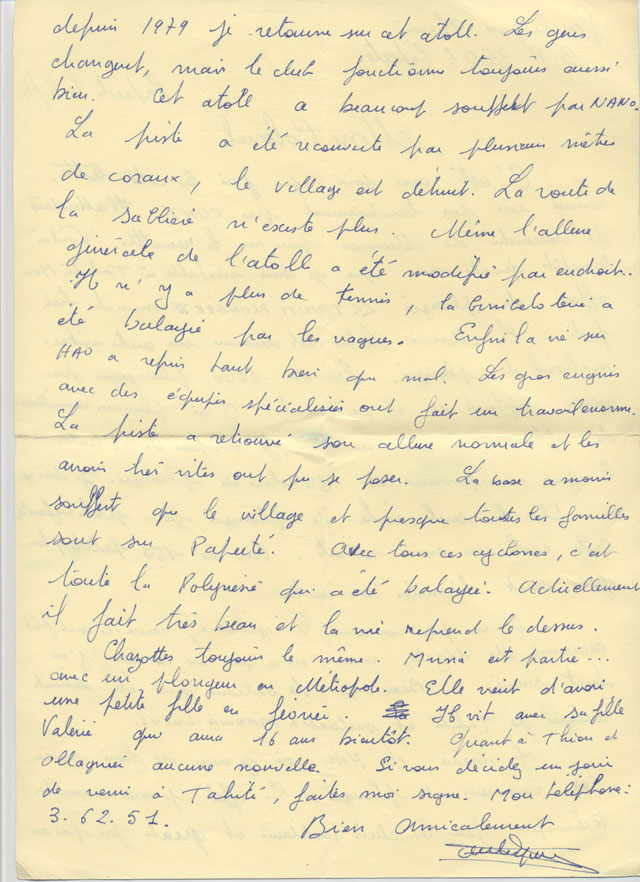 depuis 1979 je retourne sur cet atoll. Les gens
changent, mais le club fonctionne toujours aussi
bien. Cet atoll a beaucoup souffert par NANO.
La piste a été recouverte par plusieurs mètres
de coraux, le village est détruit. La route de
la Sablière n'existe plus. Même l'allure
générale de l'atoll a été modifié par endroit.
Il n'y a plus de tennis, la a
été balayée par les vagues. Enfin la vie sur
HAO a repris tant bien que mal. Les gros engins
avec des équipes spécialisées ont fait un travail enorme.
La piste a retrouvé son allure normale et les
avions très vites ont pu se poser. La base a moins
souffert que le village et presque toutes les familles
sont sur Papeete. Avec tous ces cyclones, c'est
toute la Polynésie qui a été balayée. Actuellement
il fait très beau et la vie reprend le dessus.
Chazottes toujours le même. Muria est partie...
avec un plongeur en Métropole. Elle vient d'avoir
une petite fille en février. Il vit avec sa fille
Valérie qui aura 16 ans bientôt. Quant à Thion et
Ollagnier aucune nouvelle. Si vous décidez un jour
de venir à Tahiti, faites moi signe. Mon téléphone:
3.62.51. Bien Amicalement